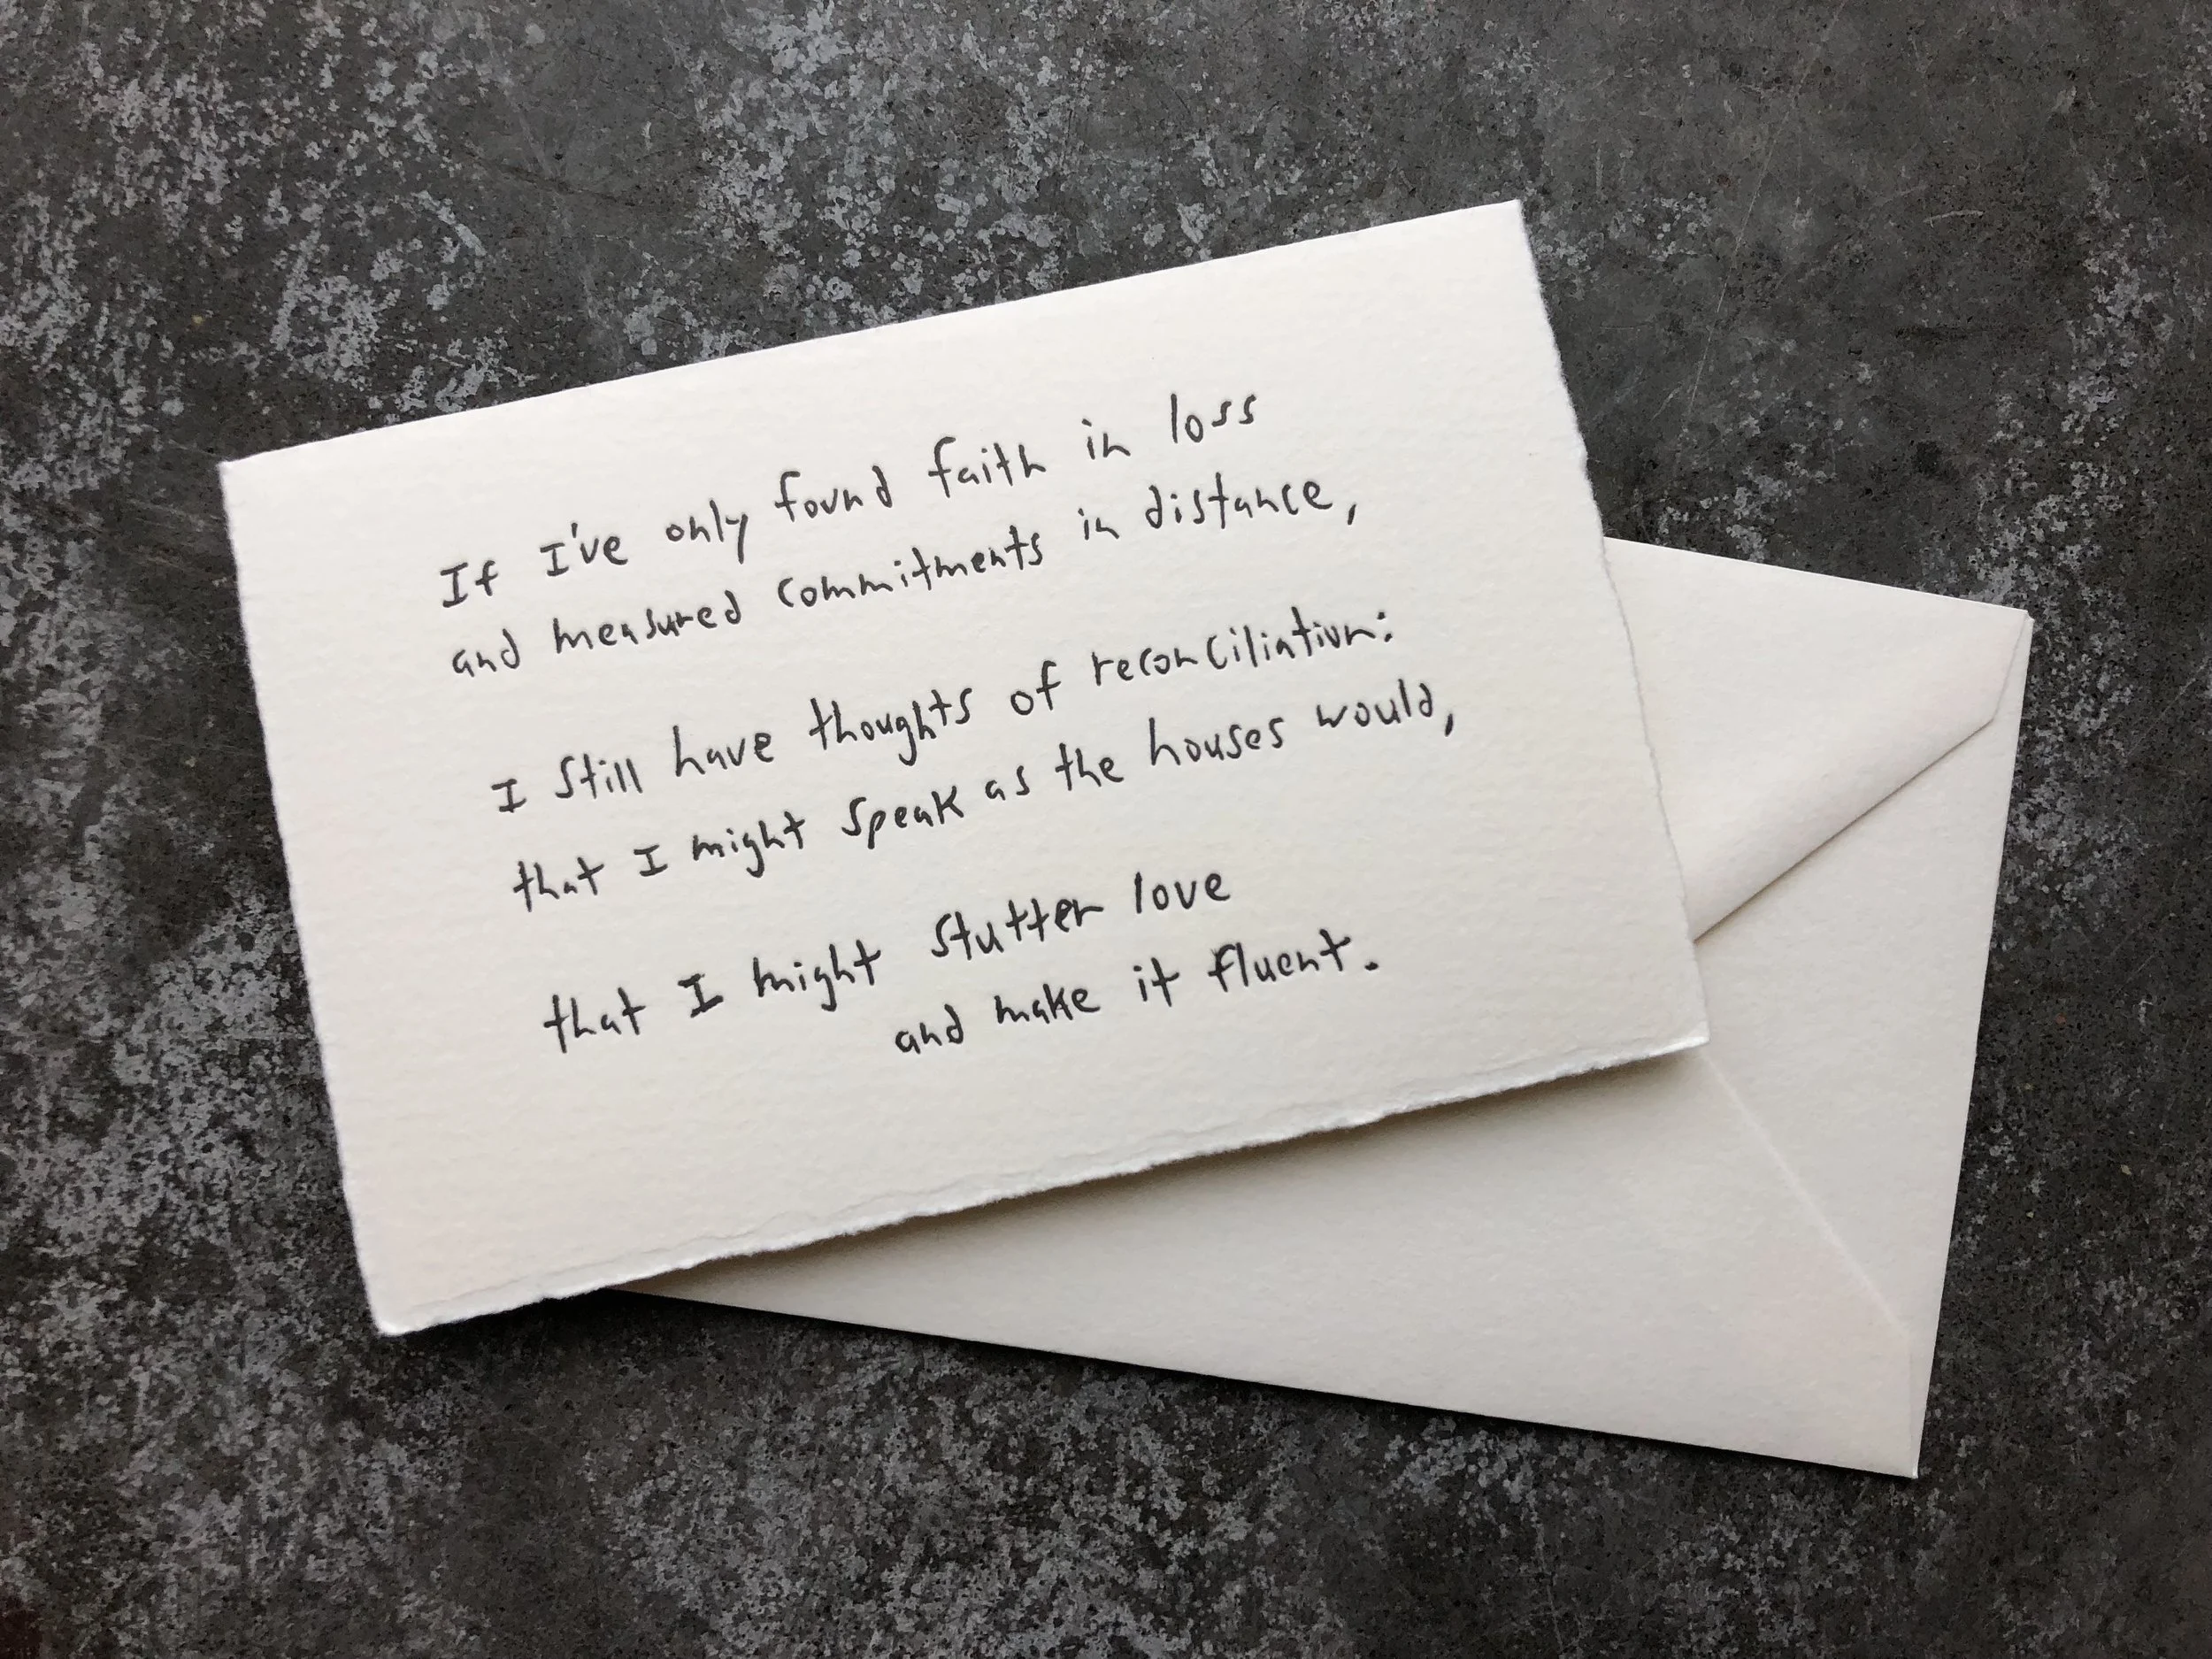 If I've only found faith in loss
and measured commitments in distance,
I still have thoughts of reconciliation:
that I might speak as the houses would,
that I might stutter love
and make it fluent.